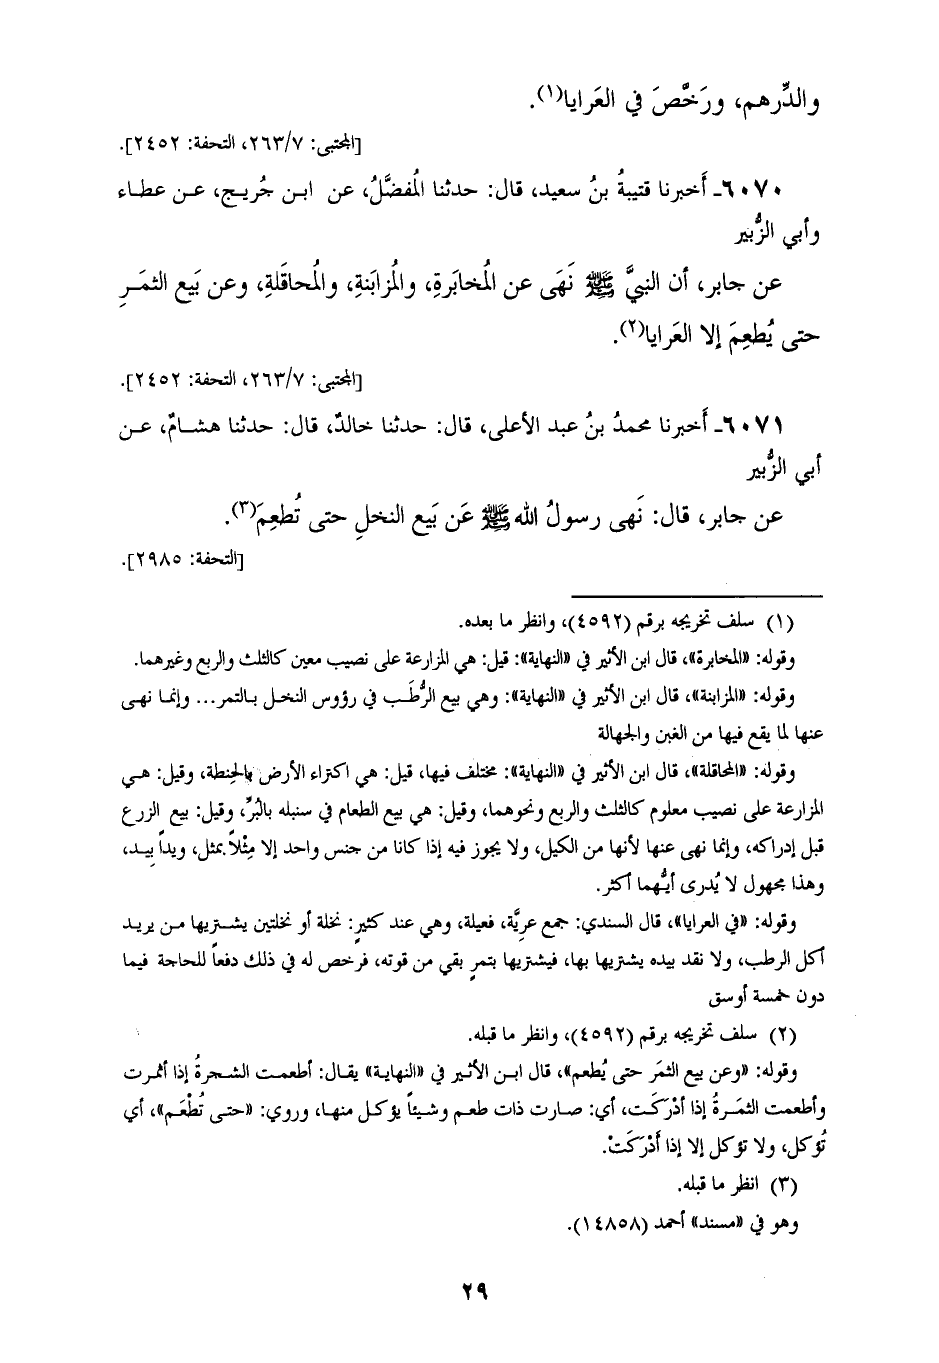 والدِّرهم، ورَخَّصَ في العَرايا(١).
[المجتبى: ٢٦٣/٧، التحفة: ٢٤٥٢].
٦٠٧٠ـ أَخبرنا قتيبةُ بنُ سعيد، قال: حدثنا المُفضَّلُ، عن ابن جُريج، عن عطاء
وأبي الزُّبير
عن جابر، أن النبيَّ ﷺ نَهَى عن المُخابَرةِ، والمُزابَنةِ، والمُحاقَلةِ، وعن بَيع الثمَرِ
حتى يُطعِمَ إلا العَرايا(٢).
[المجتبى: ٢٦٣/٧، التحفة: ٢٤٥٢].
٦٠٧١ـ أَخبرنا محمدُ بنُ عبد الأعلى، قال: حدثنا خالدٌ، قال: حدثنا هشامٌ، عن
أبي الزُّبير
عن جابر، قال: نَهى رسولُ الله ﷺ عَن بَيع النخلِ حتى تُطعِمَ(٣).
[التحفة: ٢٩٨٥].
(١) سلف تخريجه برقم (٤٥٩٢)، وانظر ما بعده.
وقوله: «المخابرة»، قال ابن الأثير في «النهاية»: قيل: هي المزارعة على نصيب معين كالثلث والربع وغيرهما.
وقوله: «المزابنة»، قال ابن الأثير في «النهاية»: وهي بيع الرُّطَب في رؤوس النخل بالتمر... وإنما نهى
عنها لما يقع فيها من الغبن والجهالة
وقوله: «المحاقلة»، قال ابن الأثير في «النهاية»: مختلف فيها، قيل: هي اكتراء الأرض بالحِنطة، وقيل: هي
المزارعة على نصيب معلوم كالثلث والربع ونحوهما، وقيل: هي بيع الطعام في سنبله بالبُرِّ، وقيل: بيع الزرع
قبل إدراكه، وإنما نهى عنها لأنها من الكيل، ولا يجوز فيه إذا كانا من جنس واحد إلا مِثْلاً بمثل، ويداً بيد،
وهذا مجهول لا يُدرى أيُّهما أكثر.
وقوله: «في العرايا»، قال السندي: جمع عريَّة، فعيلة، وهي عند كثيرٍ: نخلة أو نخلتين يشتريها من يريد
أكل الرطب، ولا نقد بيده يشتريها بها، فيشتريها بتمرٍ بقي من قوته، فرخص له في ذلك دفعاً للحاجة فيما
دون خمسة أوسق
(٢) سلف تخريجه برقم (٤٥٩٢)، وانظر ما قبله.
وقوله: «وعن بيع الثمَر حتى يُطعم»، قال ابن الأثير في «النهاية» يقال: أطعمت الشجرةُ إذا أثمرت
وأطعمت الثمَرةُ إذا أدْرَكَت، أي: صارت ذات طعم وشيئاً يؤكل منها، وروي: «حتى تُطْعَم»، أي
تُؤكل، ولا تؤكل إلا إذا أَدْرَكَتْ.
(٣) انظر ما قبله.
وهو في «مسند» أحمد (١٤٨٥٨).
٢٩